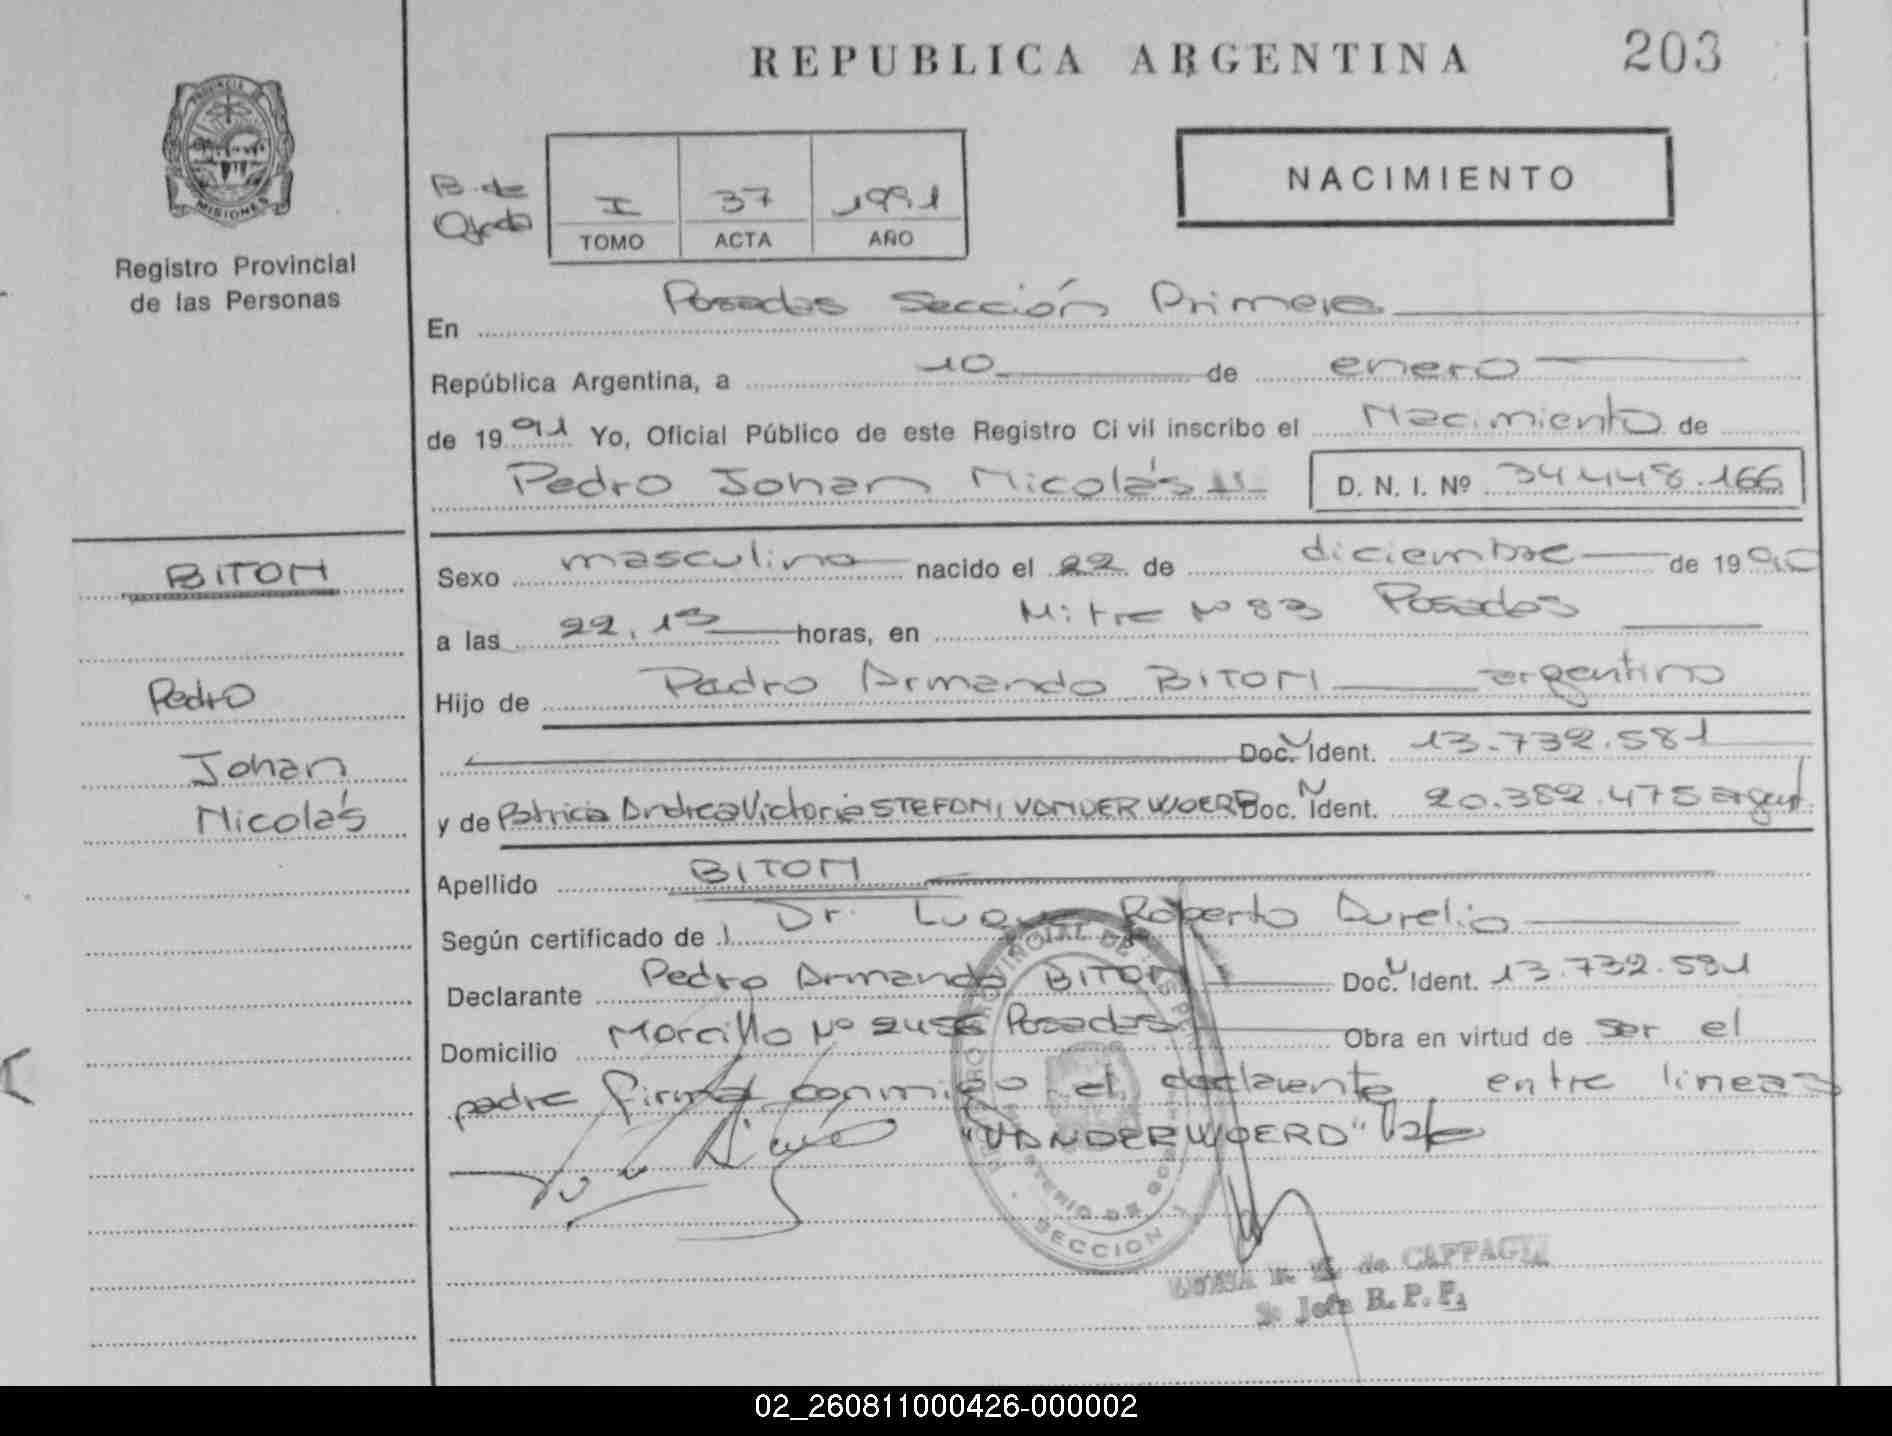 REPUBLICA ARGENTINA
203
PROVINCIA DE
MISIONES
Registro Provincial
de las Personas
B. de
I 37 1991
TOMO ACTA AÑO
NACIMIENTO
En Posadas Sección Primera
República Argentina, a 10 de enero
de 1991 Yo, Oficial Público de este Registro Civil inscribo el Nacimiento de
Pedro Johan Nicolás D. N. I. Nº 34.448.166
BITON
Pedro
Johan
Nicolás
Sexo masculino nacido el 22 de diciembre de 1990
a las 22.15 horas, en Mitre Nº 83 Posadas
Hijo de Pedro Armando BITON argentino
Doc. Ident. 13.732.581
y de Patricia Andrea Victoria STEFONI VANDERWOERD Doc. Ident. 20.382.475 argent.
Apellido BITON
Según certificado de Dr. Luque Roberto Aurelio
Declarante Pedro Armando BITON Doc. Ident. 13.732.581
Domicilio Morcillo Nº 2456 Posadas Obra en virtud de ser el
padre firma conmigo el declarante entre lineas
"VANDERWOERD" Vale
SECCION 1
de CAPPAGLI
Jefe R. P. P.
02_260811000426-000002